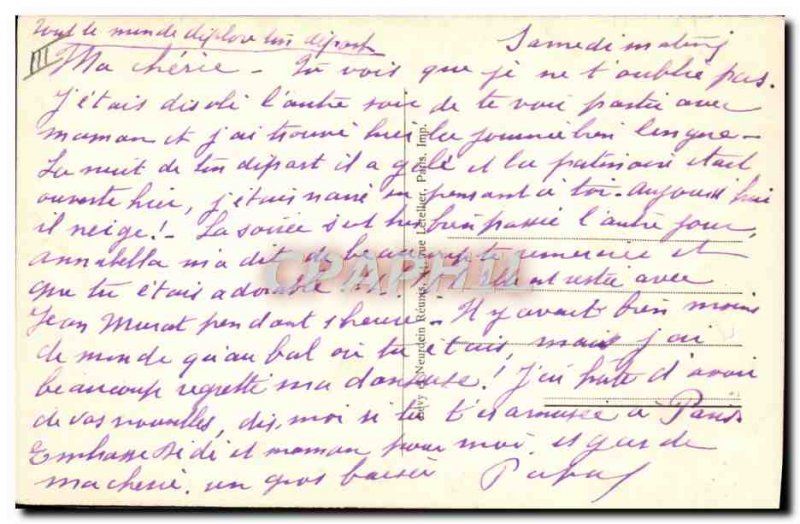 Tout le monde déplore ton départ
Samedi matin
III
Ma chérie - Tu vois que je ne t'oublie pas.
J'étais désolé l'autre soir de te voir partir avec
maman et j'ai trouvé hier la journée bien longue -
La nuit de ton départ il a gelé et la patinoire était
ouverte hier, j'étais navré en pensant à toi - aujourd'hui
il neige! - La soirée s'est bien passée l'autre jour,
annabella m'a dit de beaucoup te remercier et
que tu étais adorable et est restée avec
Jean Murat pendant 1 heure - Il y avait bien moins
de monde qu'au bal où tu étais, mais j'ai
beaucoup regretté ma danseuse! J'ai hâte d'avoir
de vos nouvelles, dis-moi si tu t'es amusée à Paris
Embrasse Dédé et maman pour moi, et
ma chérie, un gros baiser Papa
Lévy et Neurdein Réunis, rue Letellier, Paris, Imp.
CPAPHIL